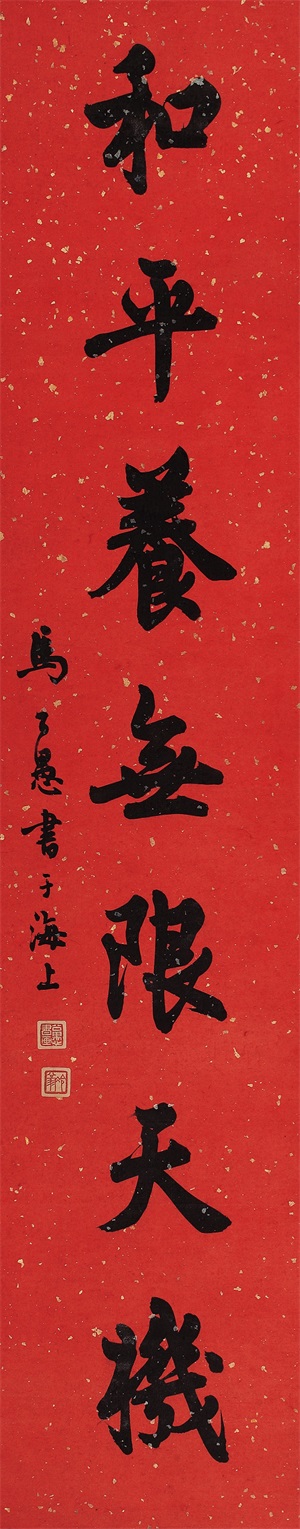 和平養無限天機
馬公愚書于海上